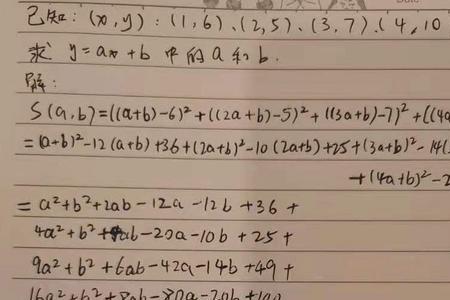 已知: (x,y): (1,6)、(2,5)、(3,7)、(4,10
求 y=ax+b 中的 a 和 b.
解:
S(a,b)=((a+b)-6)²+((2a+b)-5)²+((3a+b)-7)²+[(4a
=(a+b)²-12(a+b)+36+(2a+b)²-10(2a+b)+25+(3a+b)²-14(
+(4a+b)²-2
=a²+b²+2ab-12a-12b+36+
4a²+b²+4ab-20a-10b+25+
9a²+b²+6ab-42a-14b+49+
16a²+b²+8ab-80a-20b+100